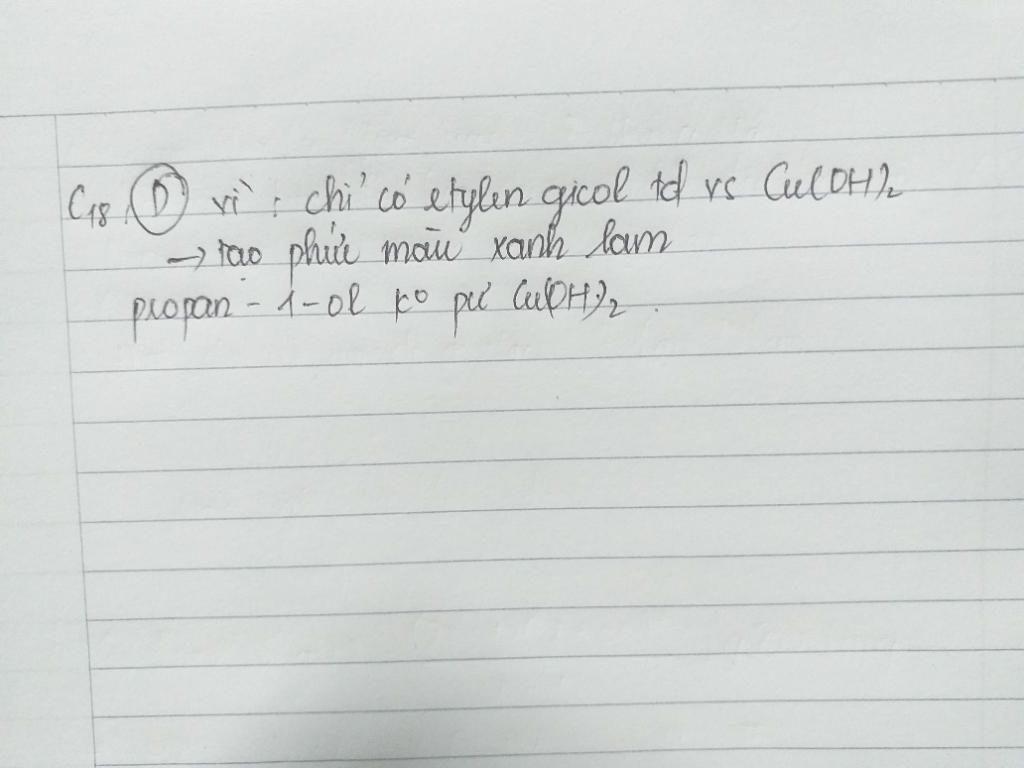 C18. D vì : chỉ có etylen gicol td vs Cu(OH)2
→ tạo phức màu xanh lam
propan - 1 - ol ko pứ Cu(OH)2.